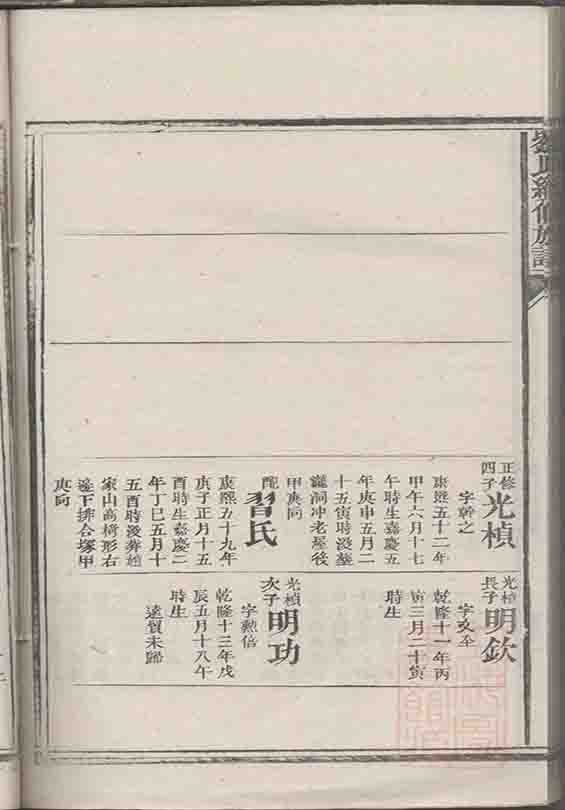 氏續修族譜
正修
四子
光楨
字幹之
康熙五十二年
甲午六月十七
午時生嘉慶五
年庚申五月二
十五寅時沒葬
龍洞冲老屋後
甲庚向
配
習氏
康熙五十九年
庚子正月十五
酉時生嘉慶二
年丁巳五月十
五酉時沒葬
家山高椅形右
邊下排合塚甲
庚向
光楨
長子
明欽
字
乾隆十一年丙
寅三月二十寅
時生
光楨
次子
明功
字勲信
乾隆十三年戊
辰五月十八午
時生
遠貿未歸